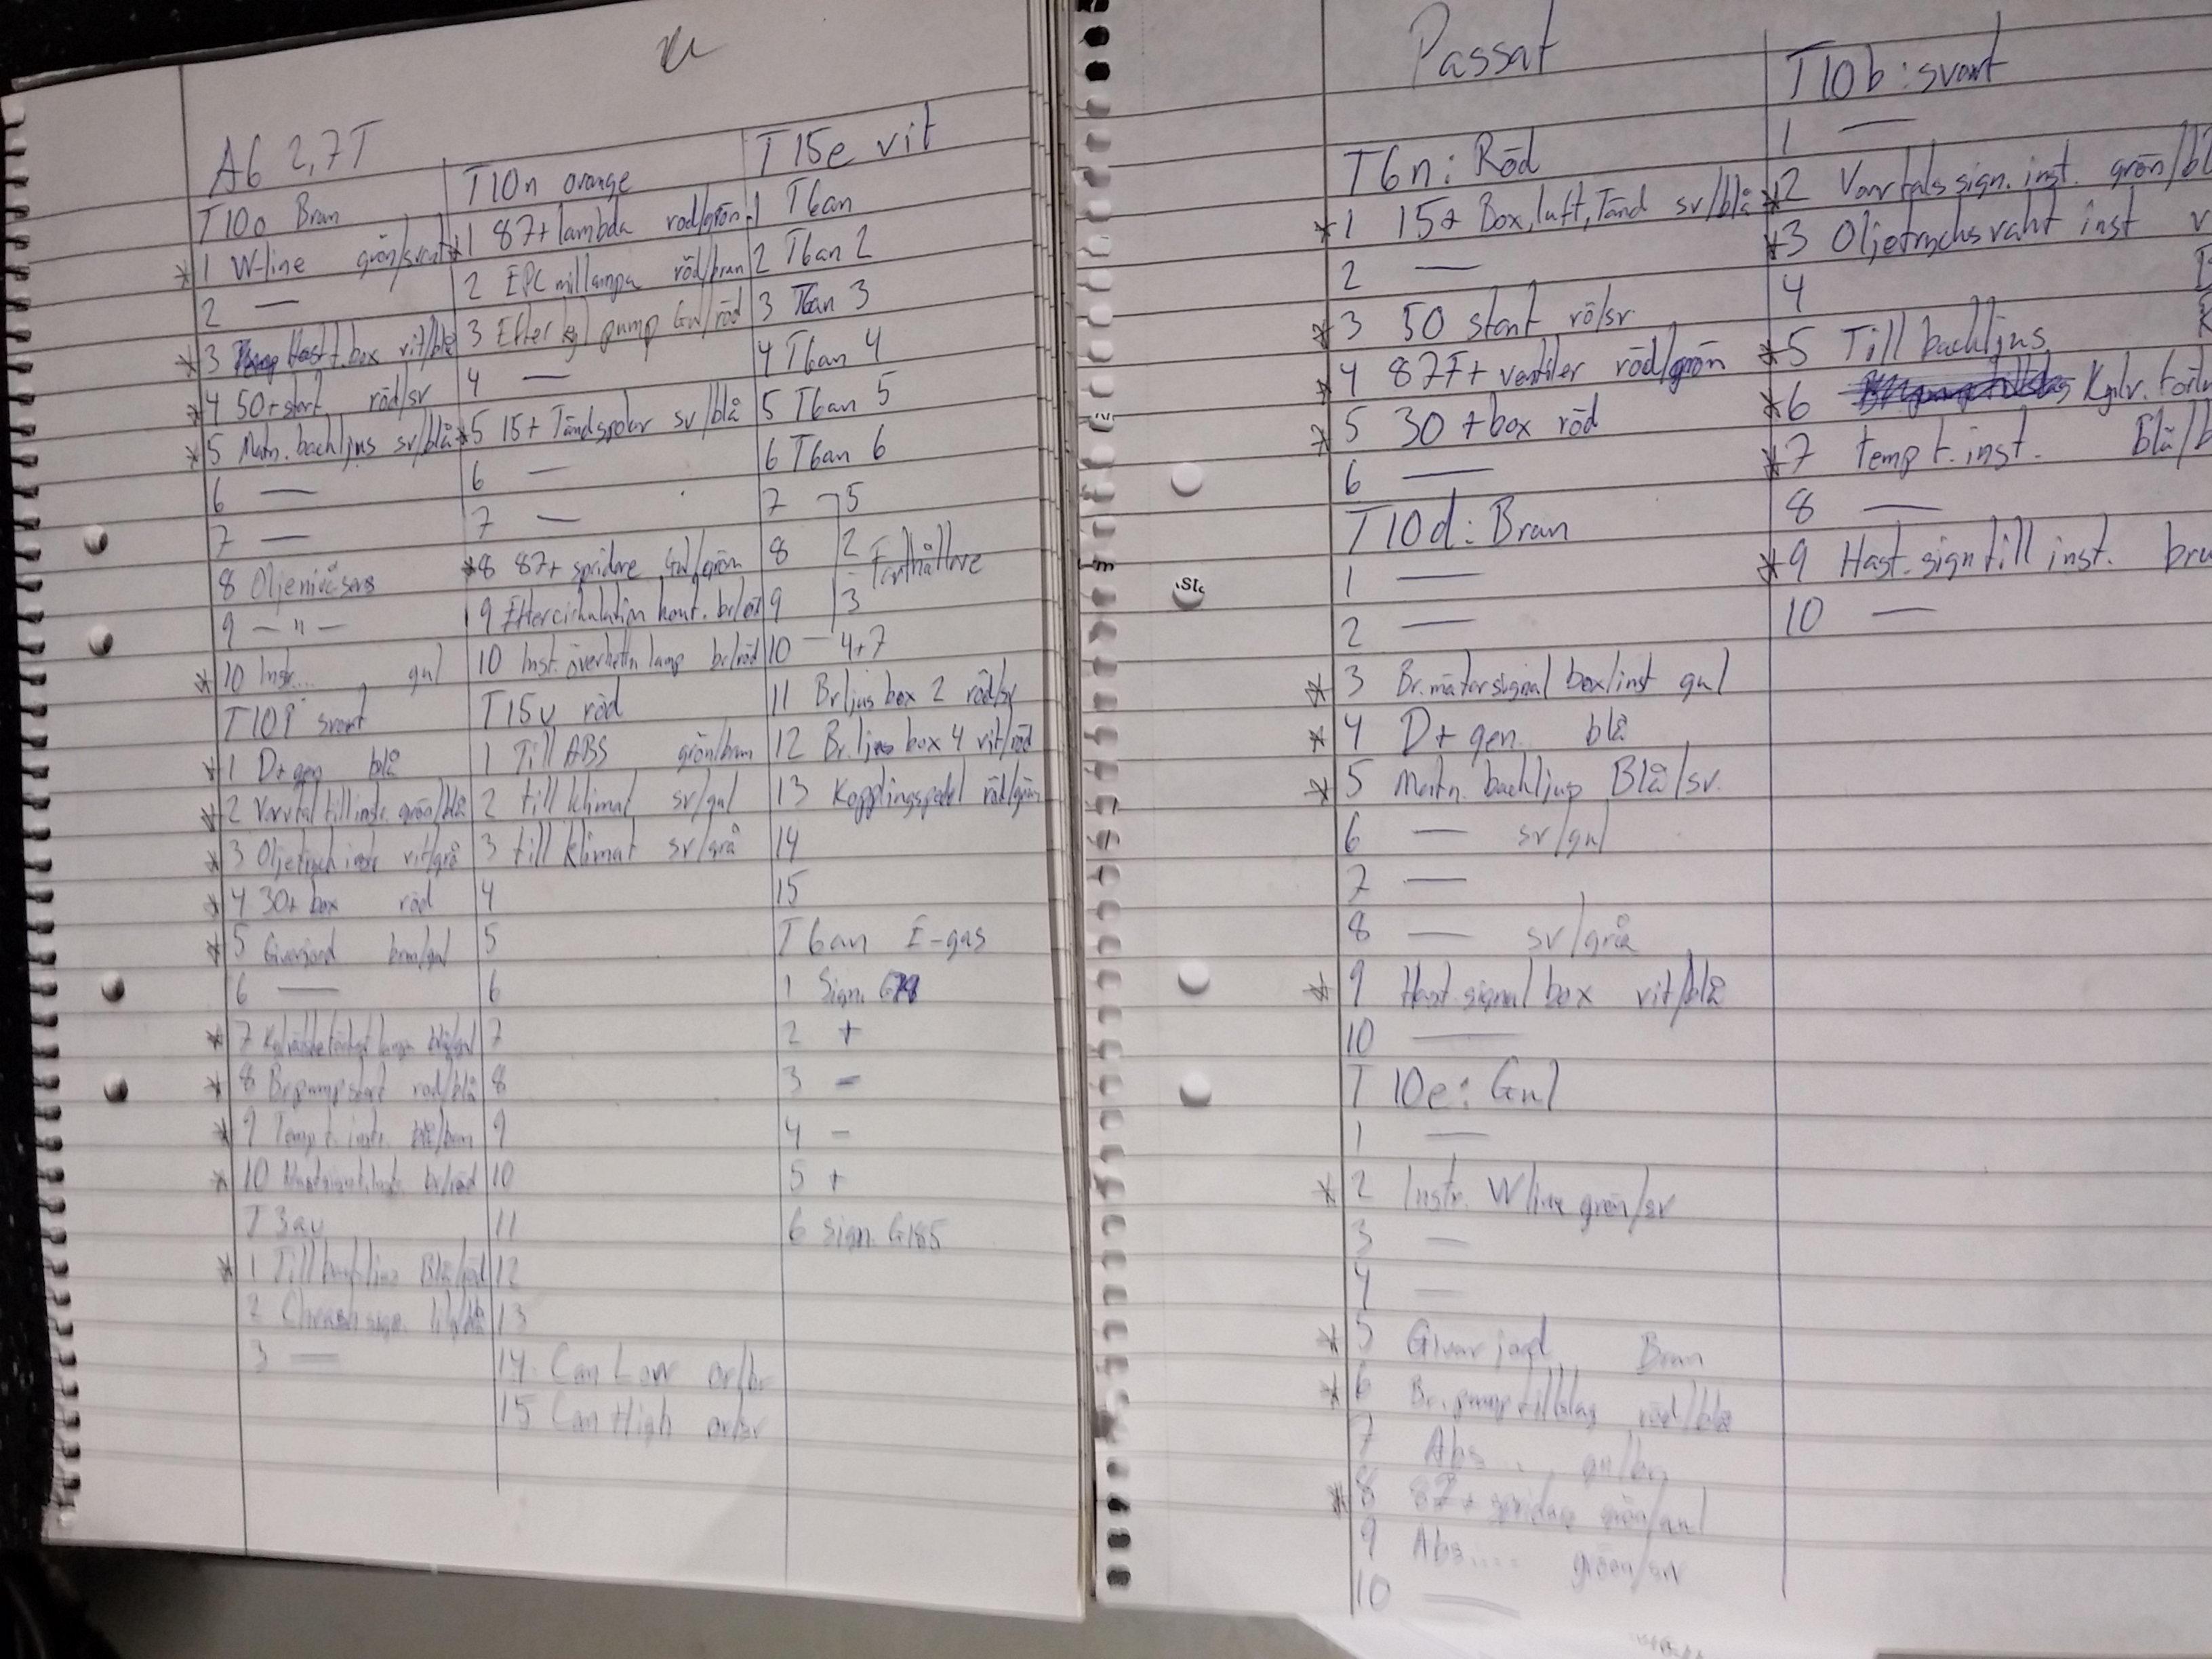 A6 2,7T
T10o Brun
*1 W-line grön/svart
2 —
*3 Hast t. box vit/blå
*4 50+start röd/sv
*5 Matn. backljus sv/blå
6 —
7 —
8 Oljenivåsens
9 — " —
*10 Instr... gul
T10P svart
*1 D+ gen blå
*2 Varvtal till instr. grön/blå
*3 Oljetryck instr vit/grå
*4 30+ box röd
*5 Givarjord brun/gul
6 —
*7 lampa blå/gul
*8 Br.pump start röd/blå
*9 Temp t. instr. blå/brun
*10 br/röd
T3au
*1 Till backljus Blå/röd
2 Chrash sign.
3 —
T10n orange
*1 87+ lambda röd/grön
2 EPC mil lampa röd/brun
3 Efter kyl pump Gul/röd
4 —
*5 15+ Tändspolar sv/blå
6 —
7 —
*8 87+ spridare Gul/grön
9 Eftercirkulation kont.
10 Inst. överhettn lamp br/röd
T15v röd
1 Till ABS grön/brun
2 till klimat sv/gul
3 till klimat sv/grå
4
5
6
7
8
9
10
11
12
13
14 Can Low or/br
15 Can High or/sv
T15e vit
1 T6an
2 T6an 2
3 T6an 3
4 T6an 4
5 T6an 5
6 T6an 6
7 5
8 2 Farthållare
9 3
10 — 4+7
11 Br ljus box 2 röd/sv
12 Br. ljus box 4 vit/röd
13 Kopplingspedal röd/grön
14
15
T6an E-gas
1 Sign. G79
2 +
3 —
4 —
5 +
6 Sign. G185
Passat
T6n: Röd
*1 15+ Box, luft, Tänd sv/blå
2 —
*3 50 start rö/sv.
*4 87F+ ventiler röd/grön
*5 30 + box röd
6 —
T10d: Brun
1 —
2 —
*3 Br.mätarsignal box/inst gul
*4 D+ gen. blå
*5 Matn. backljus Blå/sv.
6 — sv/gul
7 —
8 — sv/grå
*9 Hast signal box vit/blå
10 —
T10e: Gul
1 —
*2 Instr. W line grön/sv
3 —
4 —
*5 Givar jord Brun
*6 Br. pump tillslag röd/blå
7 Abs... gul/br
*8 87+ spridare grön/gul
9 Abs.... grön/sv
10 —
T10b: svart
1 —
*2 Varvtals sign. inst. grön/bl
*3 Oljetrycksvakt inst v
4
*5 Till backljus
*6 Kylv.
*7 Temp t. inst. Blå/b
8 —
*9 Hast. sign till inst. bru
10 —